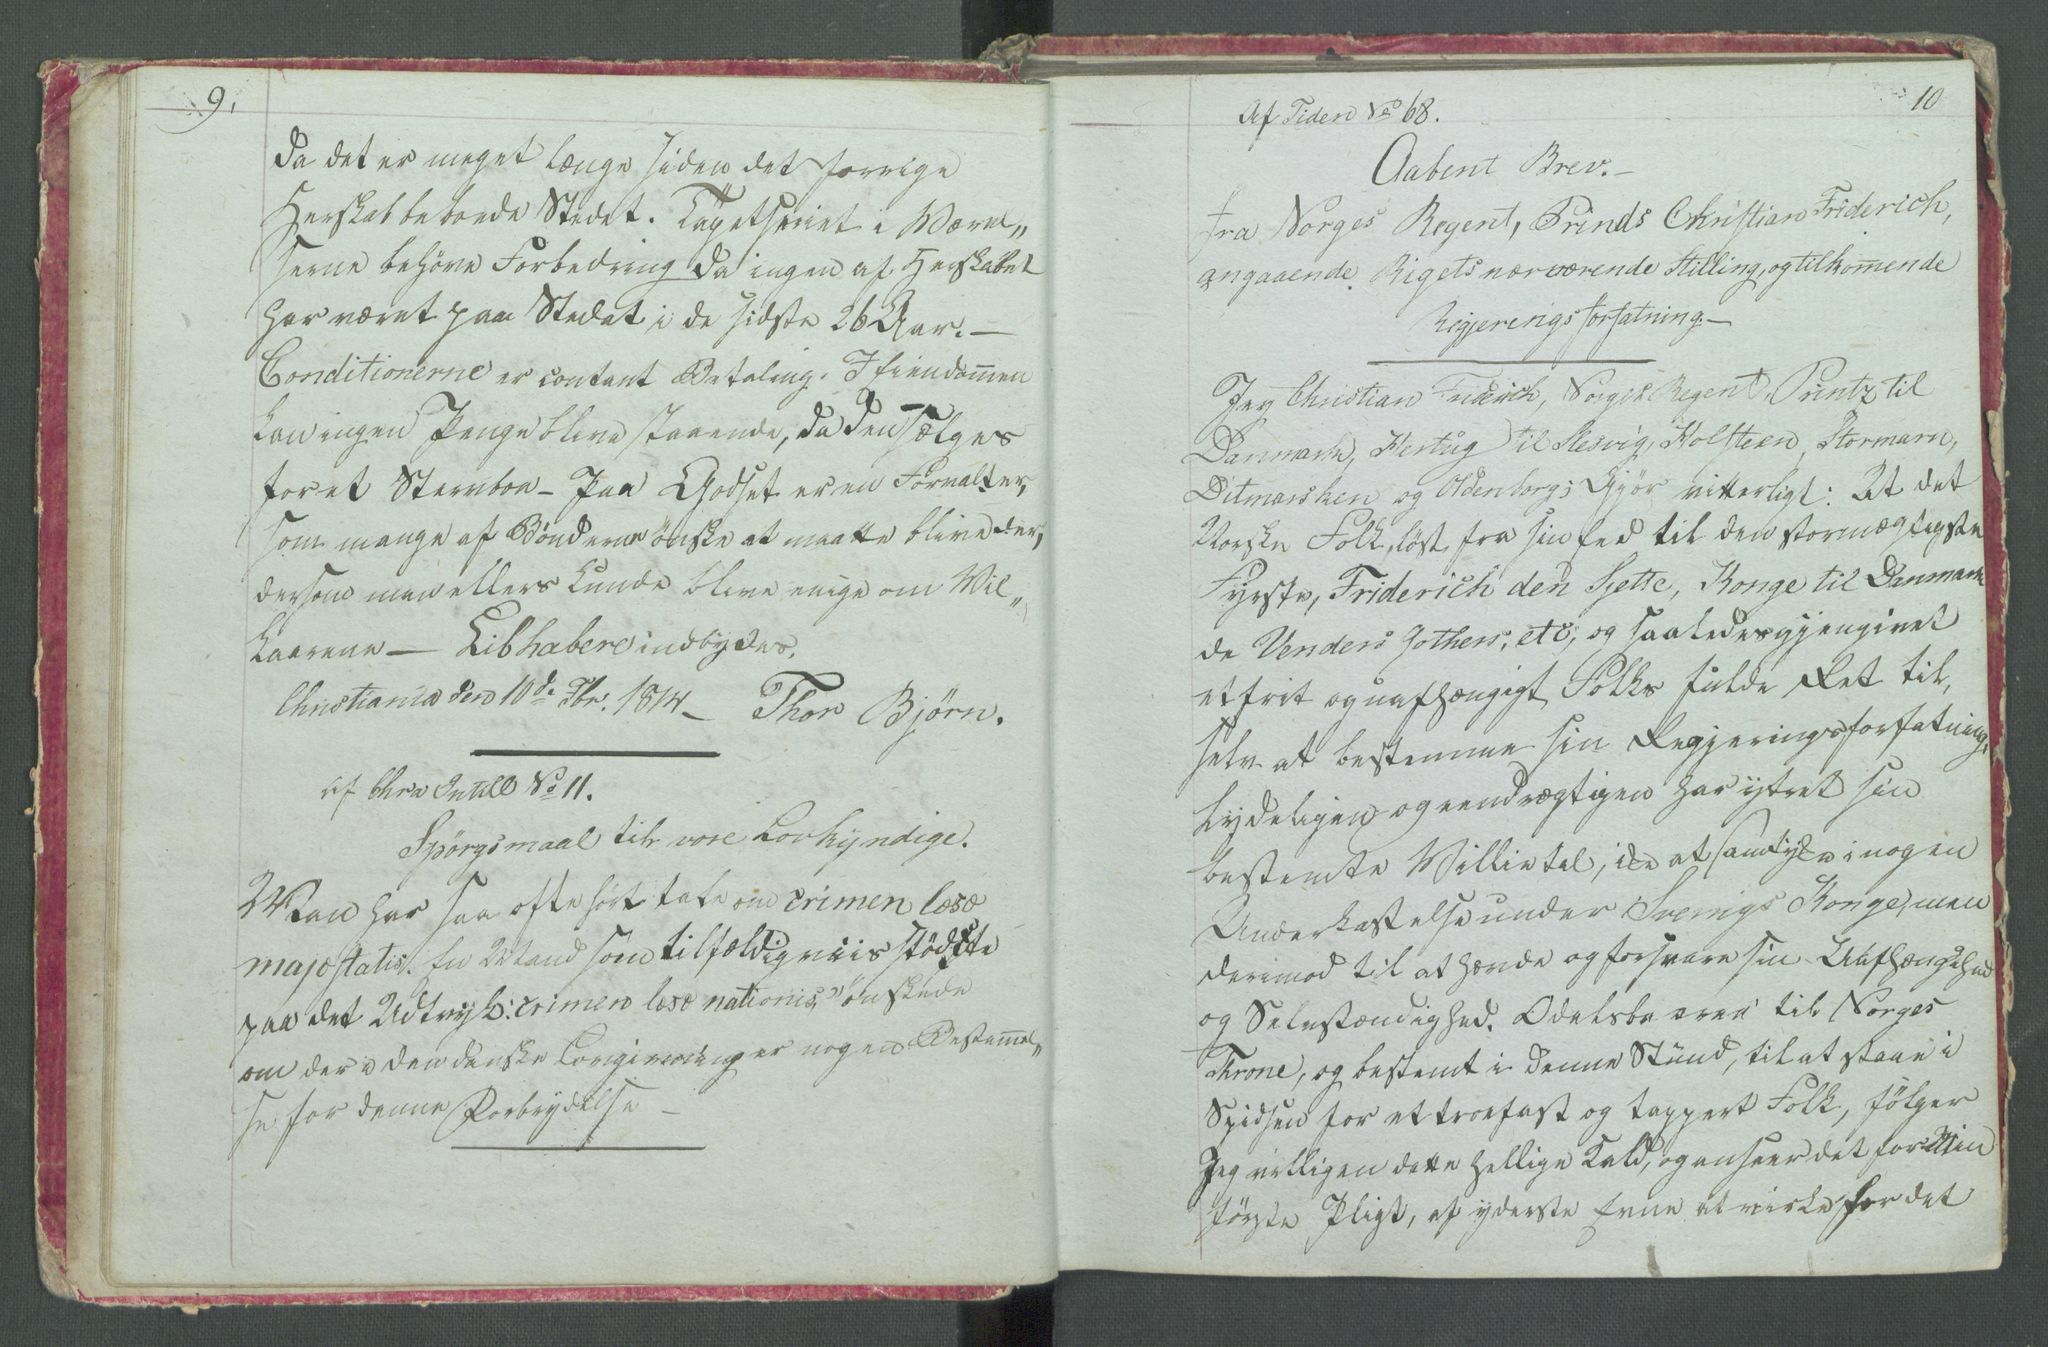 9.
da det er meget længe siden det forrige
Herskab beboede Stedet. Tapetseriet i Værel„
serne behöve Forbedring da ingen af Herskabet
har været paa Stedet i de sidste 26 Aar. —
Conditionerne er contant Betaling. I Eiendom̅en
kan ingen Penge blive staaende, da den sælges
for et Stervboe — Paa Godset er en Forvalter,
som mange af Bönderne önske at maatte blive der,
dersom man ellers kunde blive enige om Vil„
kaarene — Libhabere indbydes.
Christiania den 10de Fbr. 1814 — Thor Björn.
af Chra Intell No 11.
Spörgsmaal til vore Lovkyndige.
Man har saa ofte hört tale om crimen læsæ
majestatis. En Mand som tilfældigviis stödte
paa det Udtryk: crimen læsæ nationis, önskede
om der i den danske Lovgivning er nogen Bestem̅el„
se for denne Forbrydelse —
10
Af Tiden No 68.
Aabent Brev. —
fra Norges Regent, Prinds Christian Friderich,
angaaende Rigets nærværende Stilling, og tilkom̅ende
Regjerings forfatning. —
Jeg Christian Friderich, Norges Regent, Printz til
Danmark, Hertug til Slesvig, Holsteen, Stormarn,
Ditmarsken og Oldenborg; Gjör vitterligt: At det
Norske Folk, löst fra sin Eed til den stormægtigste
Fyrste, Friderich den Sjette, Konge til Danmark
de Venders Gothers, etc, og saaledes gjengivet
et frit og uafhængigt Folks fulde Ret til,
selv at bestemme sin Regjeringsforfatning,
lydeligen og eendrægtigen har ytret sin
bestemte Villie til, ikke at samtykke i nogen
Underkastelse under Sverigs Konge, men
derimod til at hævde og forsvare sin Uafhængighed
og Selvstændighed. Odelsbaaren til Norges
Throne, og bestemt i denne Stund, til at staae i
Spidsen for et troefast og tappert Folk, fölger
Jeg villigen dette hellige Kald, og anseer det for Min
förste Pligt, af yderste Evne at virke for det